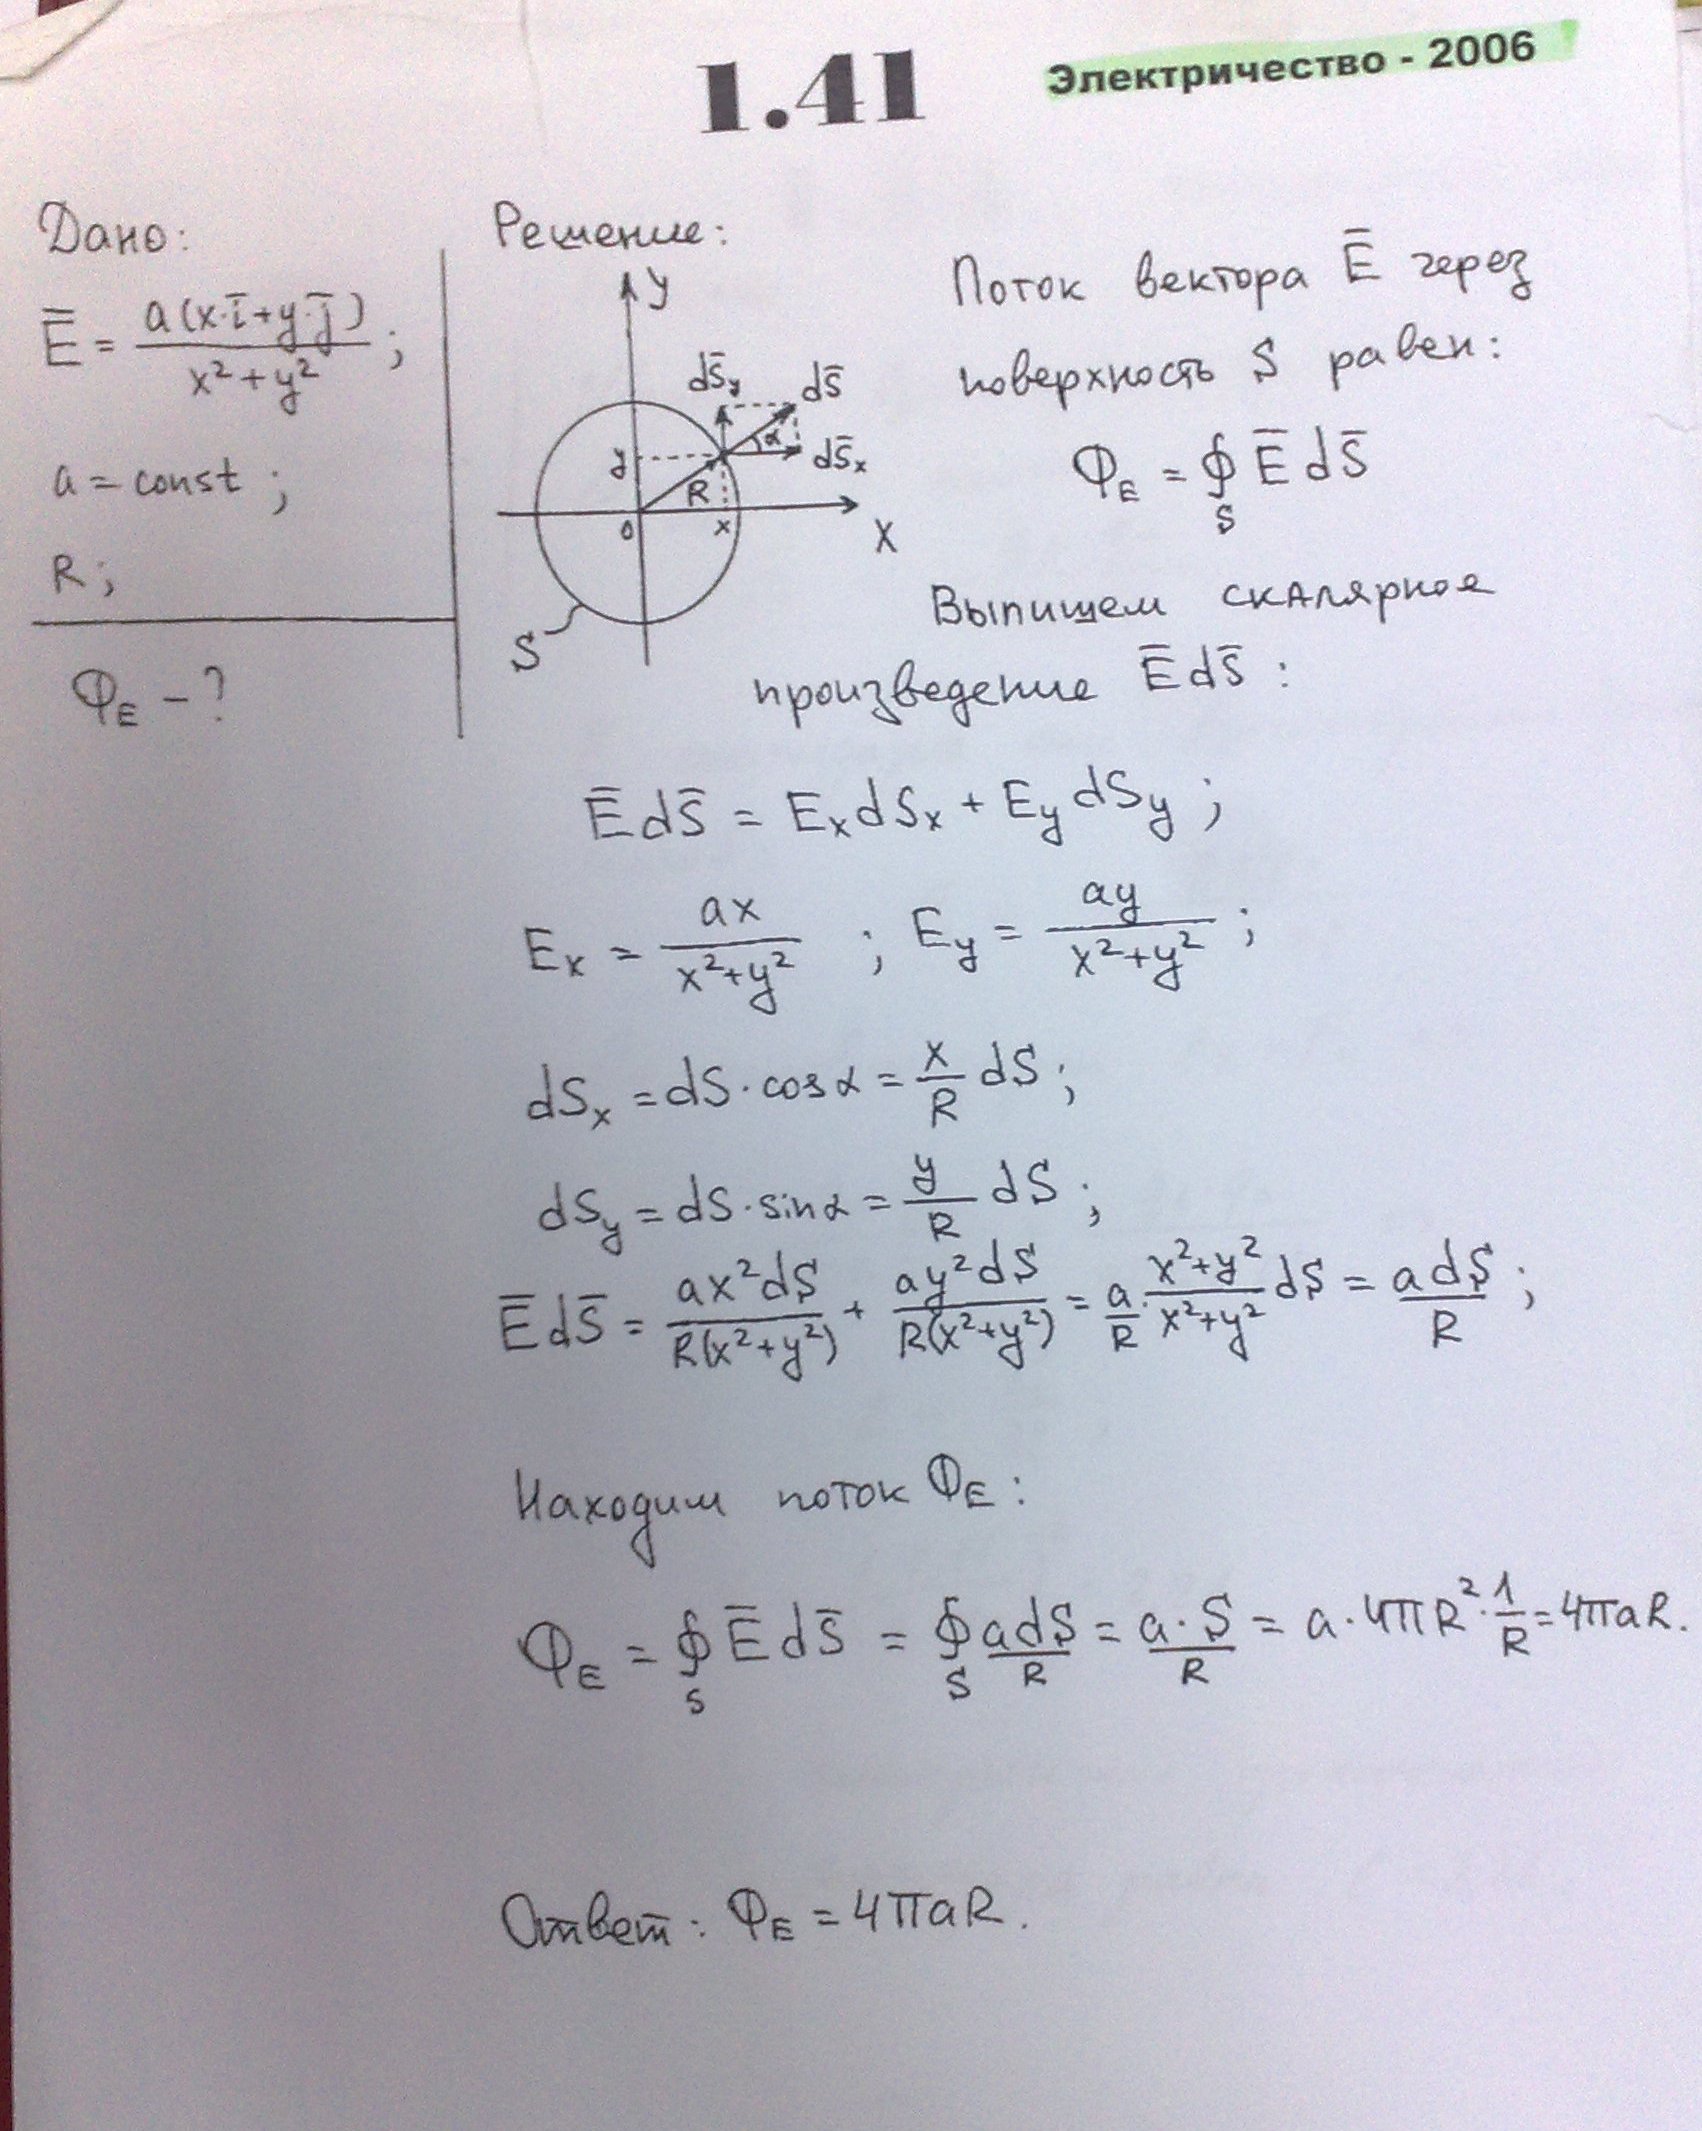 1.41
Электричество - 2006
Дано:
E̅ = a(x·i̅+y·j̅) / x²+y² ;
a = const ;
R ;
Φ_E - ?
Решение:
y
dS̅_y
dS̅
α
dS̅_x
y
R
0
x
X
S
Поток вектора E̅ через
поверхность S равен:
Φ_E = ∮_S E̅ dS̅
Выпишем скалярное
произведение E̅dS̅ :
E̅dS̅ = E_x dS_x + E_y dS_y ;
E_x = ax / x²+y² ; E_y = ay / x²+y² ;
dS_x = dS·cosα = x/R dS ;
dS_y = dS·sinα = y/R dS ;
E̅dS̅ = ax²dS / R(x²+y²) + ay²dS / R(x²+y²) = a/R · x²+y² / x²+y² dS = adS / R ;
Находим поток Φ_E :
Φ_E = ∮_S E̅dS̅ = ∮_S adS / R = a·S / R = a·4πR²·1/R = 4πaR.
Ответ: Φ_E = 4πaR.